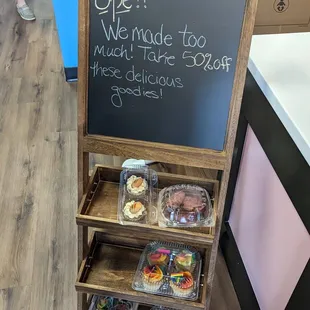 Ope!!
We made too
much! Take 50% off
these delicious
goodies!